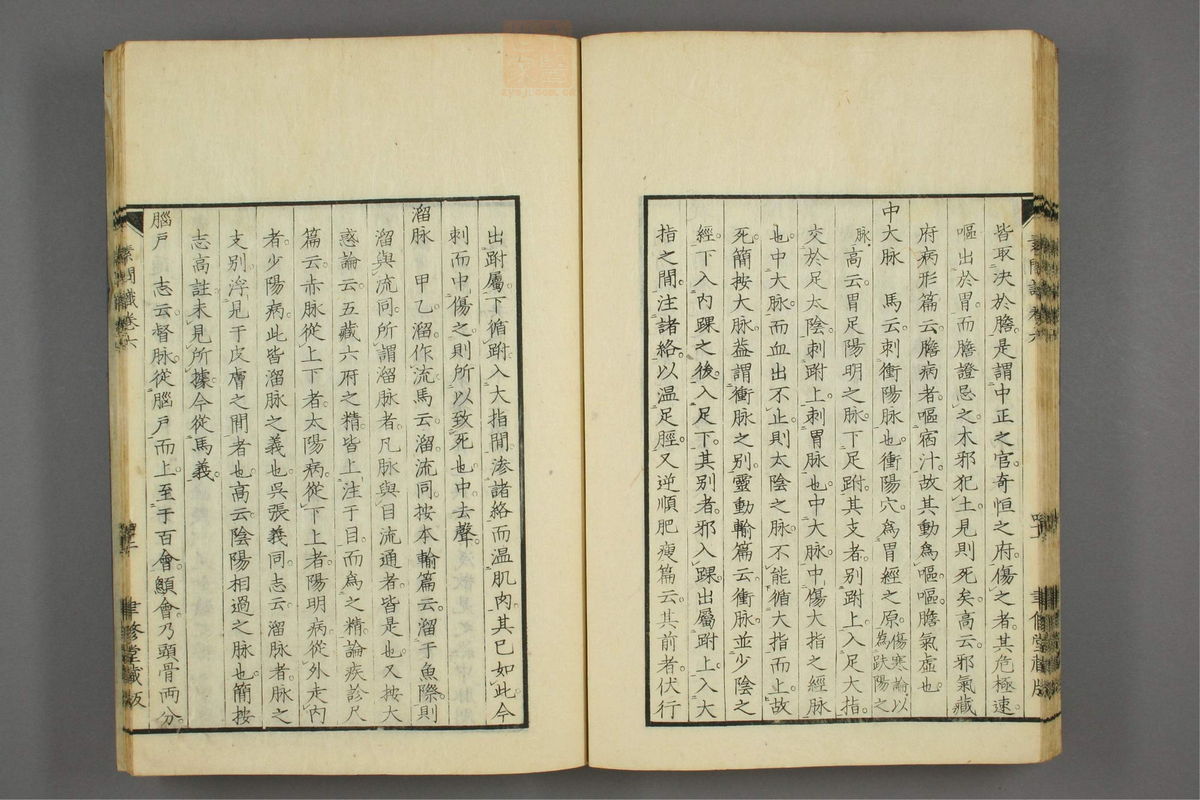 皆取決於膽。是謂中正之官。奇恒之府。傷之者。其危極速。
嘔出於胃。而膽證忌之。木邪犯土。見則死矣。高云。邪氣藏
府病形篇云。膽病者。嘔宿汁。故其動爲嘔。嘔膽氣虛也。
中大脉　馬云。刺衝陽脉也。衝陽穴。爲胃經之原。傷寒論以爲趺陽之
脉。高云。胃足陽明之脉。下足跗。其支者。別跗上。入足大指。
交於足太陰。刺跗上。刺胃脉也。中大脉。中傷大指之經脉
也。中大脉。而血出不止。則太陰之脉。不能循大指而上。故
死。簡按大脉。葢謂衝脉之別。靈動輸篇云。衝脉並少陰之
經。下入內踝之後。入足下。其別者。邪入踝。出屬跗上。入大
指之間。注諸絡。以温足脛。又逆順肥瘦篇云。其前者。伏行
出跗屬。下循跗。入大指間。滲諸絡而温肌肉。其已如此。今
刺而中傷之。則所以致死也。中去聲。
溜脉　甲乙溜作流。馬云。溜流同。按本輸篇云。溜于魚際。則
溜與流同。所謂溜脉者。凡脉與目流通者皆是也。又按大
惑論云。五藏六府之精。皆上注于目而爲之精。論疾診尺
篇云。赤脉從上下者。太陽病。從下上者。陽明病。從外走內
者。少陽病。此皆溜脉之義也。吳張義同。志云。溜脉者。脉之
支別。浮見于皮膚之間者也。高云。陰陽相過之脉也。簡按
志高註。未見所據。今從馬義。
腦戶　志云。督脉從腦戶而上。至于百會。顖會。乃頭骨兩分。
素問識卷六
聿修堂藏版
素問識卷六
聿修堂藏版